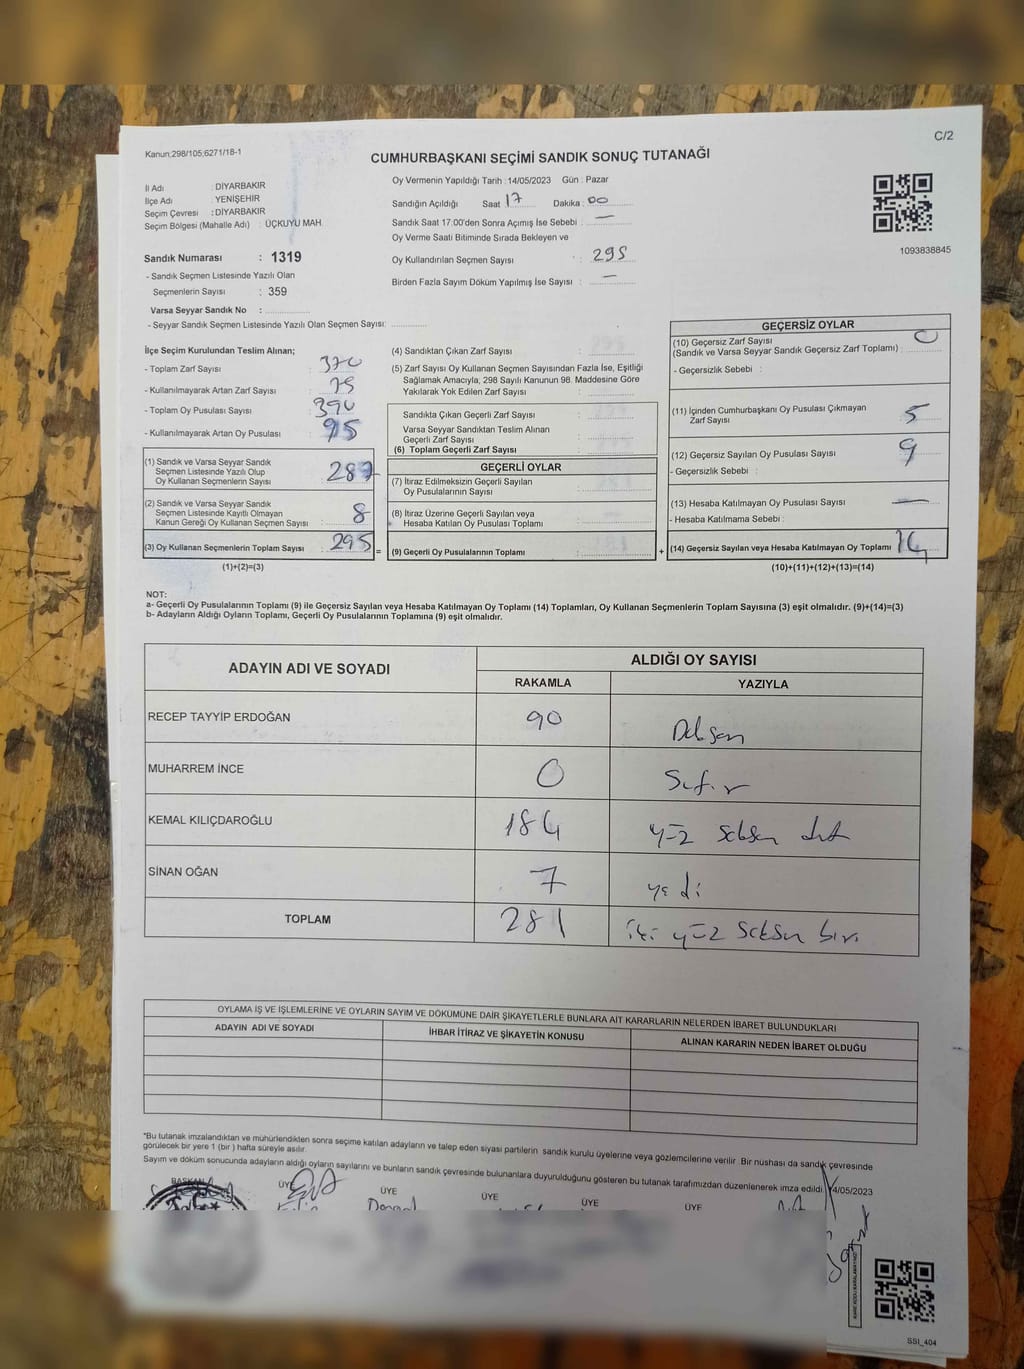 C/2
Kanun:298/105;6271/18-1
CUMHURBAŞKANI SEÇİMİ SANDIK SONUÇ TUTANAĞI
İl Adı : DİYARBAKIR
İlçe Adı : YENİŞEHİR
Seçim Çevresi : DİYARBAKIR
Seçim Bölgesi (Mahalle Adı) : ÜÇKUYU MAH.
Oy Vermenin Yapıldığı Tarih : 14/05/2023 Gün : Pazar
Sandığın Açıldığı Saat 17 Dakika : 00
Sandık Saat 17:00'den Sonra Açımış İse Sebebi : —
Oy Verme Saati Bitiminde Sırada Bekleyen ve
Oy Kullandırılan Seçmen Sayısı : 295
Birden Fazla Sayım Döküm Yapılmış İse Sayısı : —
1093838845
Sandık Numarası : 1319
- Sandık Seçmen Listesinde Yazılı Olan
Seçmenlerin Sayısı : 359
Varsa Seyyar Sandık No :
- Seyyar Sandık Seçmen Listesinde Yazılı Olan Seçmen Sayısı:
İlçe Seçim Kurulundan Teslim Alınan;
- Toplam Zarf Sayısı : 370
- Kullanılmayarak Artan Zarf Sayısı : 75
- Toplam Oy Pusulası Sayısı : 390
- Kullanılmayarak Artan Oy Pusulası : 95
(1) Sandık ve Varsa Seyyar Sandık
Seçmen Listesinde Yazılı Olup
Oy Kullanan Seçmenlerin Sayısı : 287
(2) Sandık ve Varsa Seyyar Sandık
Seçmen Listesinde Kayıtlı Olmayan
Kanun Gereği Oy Kullanan Seçmen Sayısı : 8
(3) Oy Kullanan Seçmenlerin Toplam Sayısı : 295 =
(1)+(2)=(3)
(4) Sandıktan Çıkan Zarf Sayısı :
(5) Zarf Sayısı Oy Kullanan Seçmen Sayısından Fazla İse, Eşitliği
Sağlamak Amacıyla, 298 Sayılı Kanunun 98. Maddesine Göre
Yakılarak Yok Edilen Zarf Sayısı :
Sandıkta Çıkan Geçerli Zarf Sayısı :
Varsa Seyyar Sandıktan Teslim Alınan
Geçerli Zarf Sayısı :
(6) Toplam Geçerli Zarf Sayısı :
GEÇERLİ OYLAR
(7) İtiraz Edilmeksizin Geçerli Sayılan
Oy Pusulalarının Sayısı :
(8) İtiraz Üzerine Geçerli Sayılan veya
Hesaba Katılan Oy Pusulası Toplamı :
(9) Geçerli Oy Pusulalarının Toplamı : +
GEÇERSİZ OYLAR
(10) Geçersiz Zarf Sayısı
(Sandık ve Varsa Seyyar Sandık Geçersiz Zarf Toplamı) : 0
- Geçersizlik Sebebi :
(11) İçinden Cumhurbaşkanı Oy Pusulası Çıkmayan
Zarf Sayısı : 5
(12) Geçersiz Sayılan Oy Pusulası Sayısı : 9
- Geçersizlik Sebebi :
(13) Hesaba Katılmayan Oy Pusulası Sayısı : —
- Hesaba Katılmama Sebebi :
(14) Geçersiz Sayılan veya Hesaba Katılmayan Oy Toplamı 14
(10)+(11)+(12)+(13)=(14)
NOT:
a- Geçerli Oy Pusulalarının Toplamı (9) ile Geçersiz Sayılan veya Hesaba Katılmayan Oy Toplamı (14) Toplamları, Oy Kullanan Seçmenlerin Toplam Sayısına (3) eşit olmalıdır. (9)+(14)=(3)
b- Adayların Aldığı Oyların Toplamı, Geçerli Oy Pusulalarının Toplamına (9) eşit olmalıdır.
ADAYIN ADI VE SOYADI ALDIĞI OY SAYISI
RAKAMLA YAZIYLA
RECEP TAYYİP ERDOĞAN 90
MUHARREM İNCE 0 Sıfır
KEMAL KILIÇDAROĞLU 184 yüz seksen dört
SİNAN OĞAN 7 yedi
TOPLAM 281 iki yüz seksen biri
OYLAMA İŞ VE İŞLEMLERİNE VE OYLARIN SAYIM VE DÖKÜMÜNE DAİR ŞİKAYETLERLE BUNLARA AİT KARARLARIN NELERDEN İBARET BULUNDUKLARI
ADAYIN ADI VE SOYADI İHBAR İTİRAZ VE ŞİKAYETİN KONUSU ALINAN KARARIN NEDEN İBARET OLDUĞU
"Bu tutanak imzalandıktan ve mühürlendikten sonra seçime katılan adayların ve talep eden siyasi partilerin sandık kurulu üyelerine veya gözlemcilerine verilir. Bir nushası da sandık çevresinde
görülecek bir yere 1 (bir) hafta süreyle asılır.
Sayım ve döküm sonucunda adayların aldığı oyların sayılarını ve bunların sandık çevresinde bulunanlara duyurulduğunu gösteren bu tutanak tarafımızdan düzenlenerek imza edildi. 14/05/2023
BAŞKAN ÜYE ÜYE ÜYE ÜYE ÜYE
SSI_404